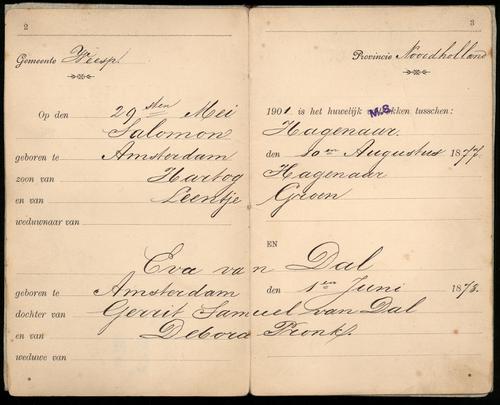 2
Gemeente Weesp.
Op den 29sten Mei
Salomon
geboren te Amsterdam
zoon van Hartog
en van Leentje
weduwnaar van
Eva van
geboren te Amsterdam
dochter van Gerrit Samuel van Dal
en van Debora Pronk.
weduwe van
3
Provincie Noordholland
1901 is het huwelijk tusschen:
M.S.
Hagenaar.
den 10en Augustus 1877.
Hagenaar
Groen
EN
Dal
den 1en Juni 1878.